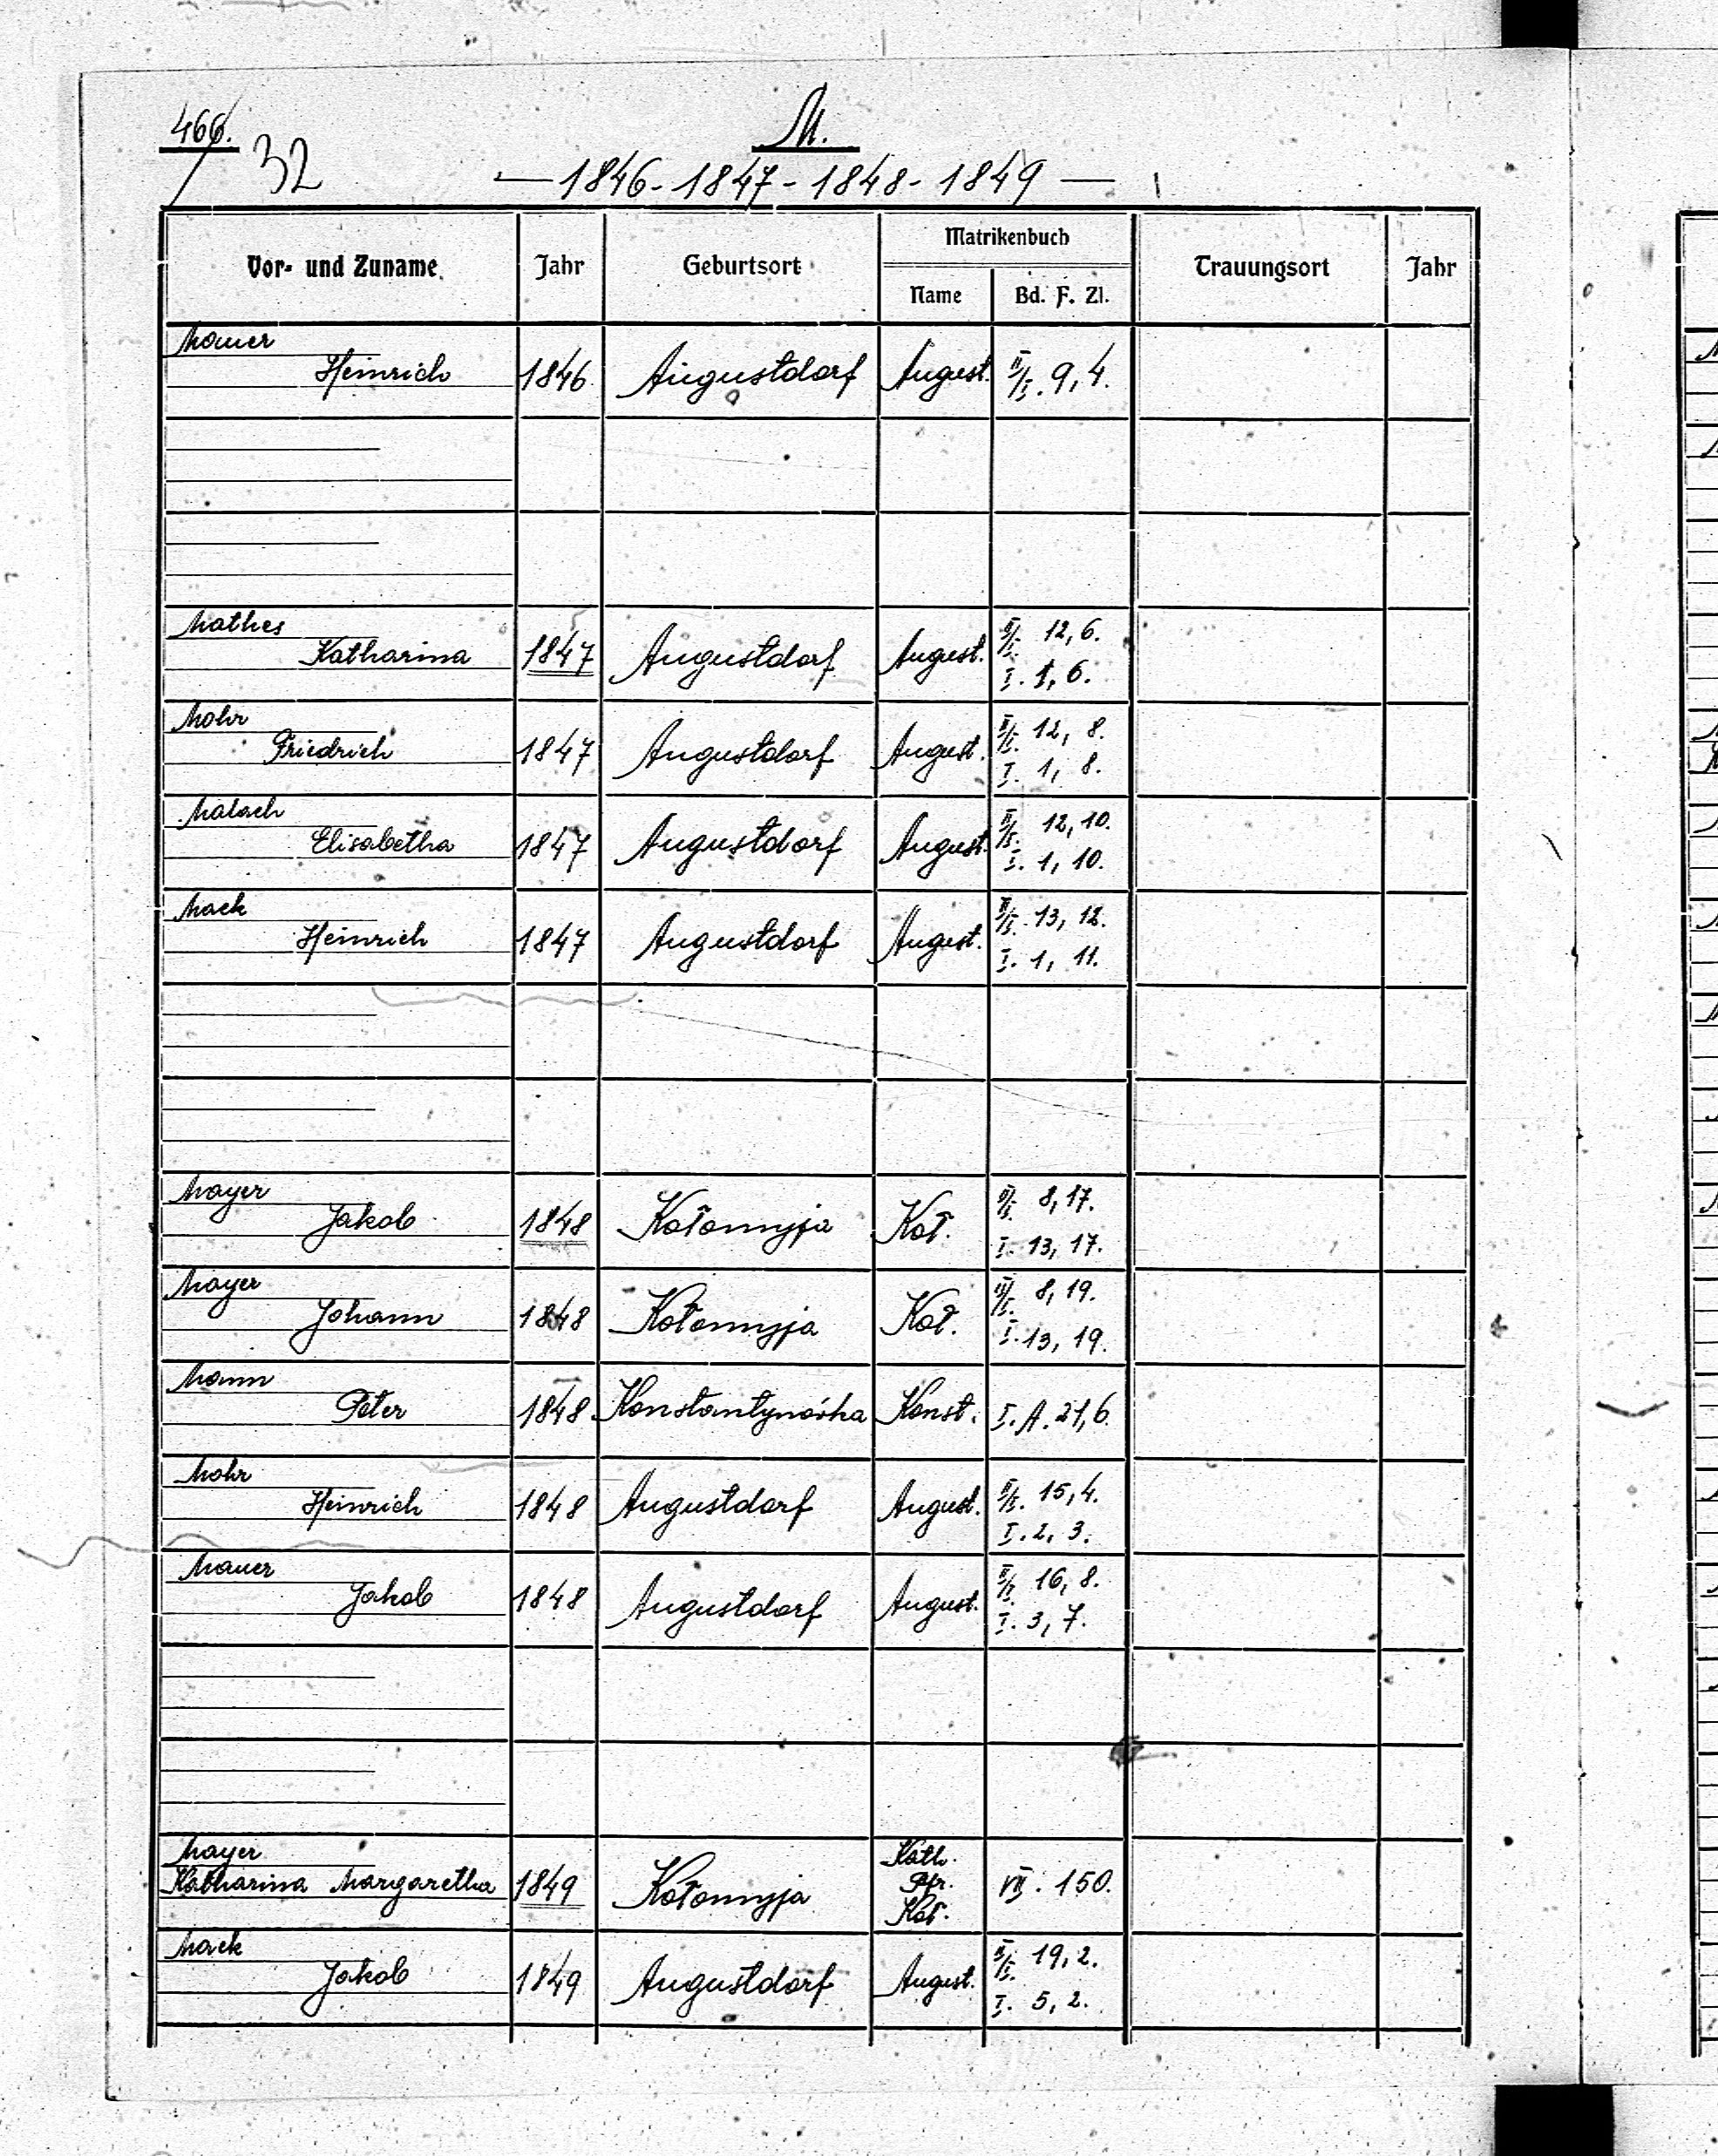 466.
32
M.
— 1846-1847-1848-1849 —
Vor- und Zuname Jahr Geburtsort Matrikenbuch Trauungsort Jahr
Name Bd. F. Zl.
Mauer
Heinrich 1846 Augustdorf August. II/I. 9, 4.
Mathes
Katharina 1847 Augustdorf August. II/I. 12, 6.
I. 1, 6.
Mohr
Friedrich 1847 Augustdorf August. II/I. 12, 8.
I. 1, 8.
Malach
Elisabetha 1847 Augustdorf August. II/I. 12, 10.
I. 1, 10.
Mack
Heinrich 1847 Augustdorf August. II/I. 13, 12.
I. 1, 11.
Mayer
Jakob 1848 Kołomyja Koł. II/I. 8, 17.
I. 13, 17.
Mayer
Johann 1848 Kołomyja Koł. II/I. 8, 19.
I. 13, 19.
Mann
Peter 1848 Konstantynówka Konst. I. A. 21, 6.
Mohr
Heinrich 1848 Augustdorf August. II/I. 15, 4.
I. 2, 3.
Mauer
Jakob 1848 Augustdorf August. II/I. 16, 8.
I. 3, 7.
Mayer
Katharina Margaretha 1849 Kołomyja Kath. Pfr. Koł. VII. 150.
Mack
Jakob 1849 Augustdorf August. II/I. 19, 2.
I. 5, 2.